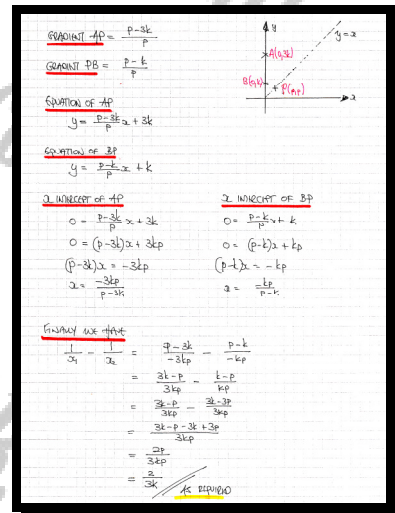 GRADIENT AP = \frac{p-3k}{p}
y = x
A(0,3k)
GRADIENT PB = \frac{p-k}{p}
B(0,k)
P(p,p)
x
y
EQUATION OF AP
y = \frac{p-3k}{p}x + 3k
EQUATION OF BP
y = \frac{p-k}{p}x + k
x INTERCEPT OF AP
0 = \frac{p-3k}{p}x + 3k
0 = (p-3k)x + 3kp
(p-3k)x = -3kp
x = \frac{-3kp}{p-3k}
x INTERCEPT OF BP
0 = \frac{p-k}{p}x + k
0 = (p-k)x + kp
(p-k)x = -kp
x = \frac{-kp}{p-k}
FINALLY WE HAVE
\frac{1}{x_1} - \frac{1}{x_2} = \frac{p-3k}{-3kp} - \frac{p-k}{-kp}
= \frac{3k-p}{3kp} - \frac{k-p}{kp}
= \frac{3k-p}{3kp} - \frac{3k-3p}{3kp}
= \frac{3k-p-3k+3p}{3kp}
= \frac{2p}{3kp}
= \frac{2}{3k}
AS REQUIRED